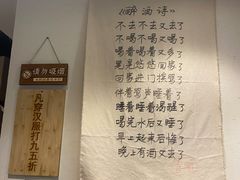 《醉酒诗》
不去不去又去了
不喝不喝又喝了
喝着喝着又多了
晃晃悠悠回家了
回家进门挨骂了
伴着骂声睡着了
睡着睡着渴醒了
喝完水后又睡了
早上起来后悔了
晚上有酒又去了
请勿吸烟
凡穿汉服打九五折